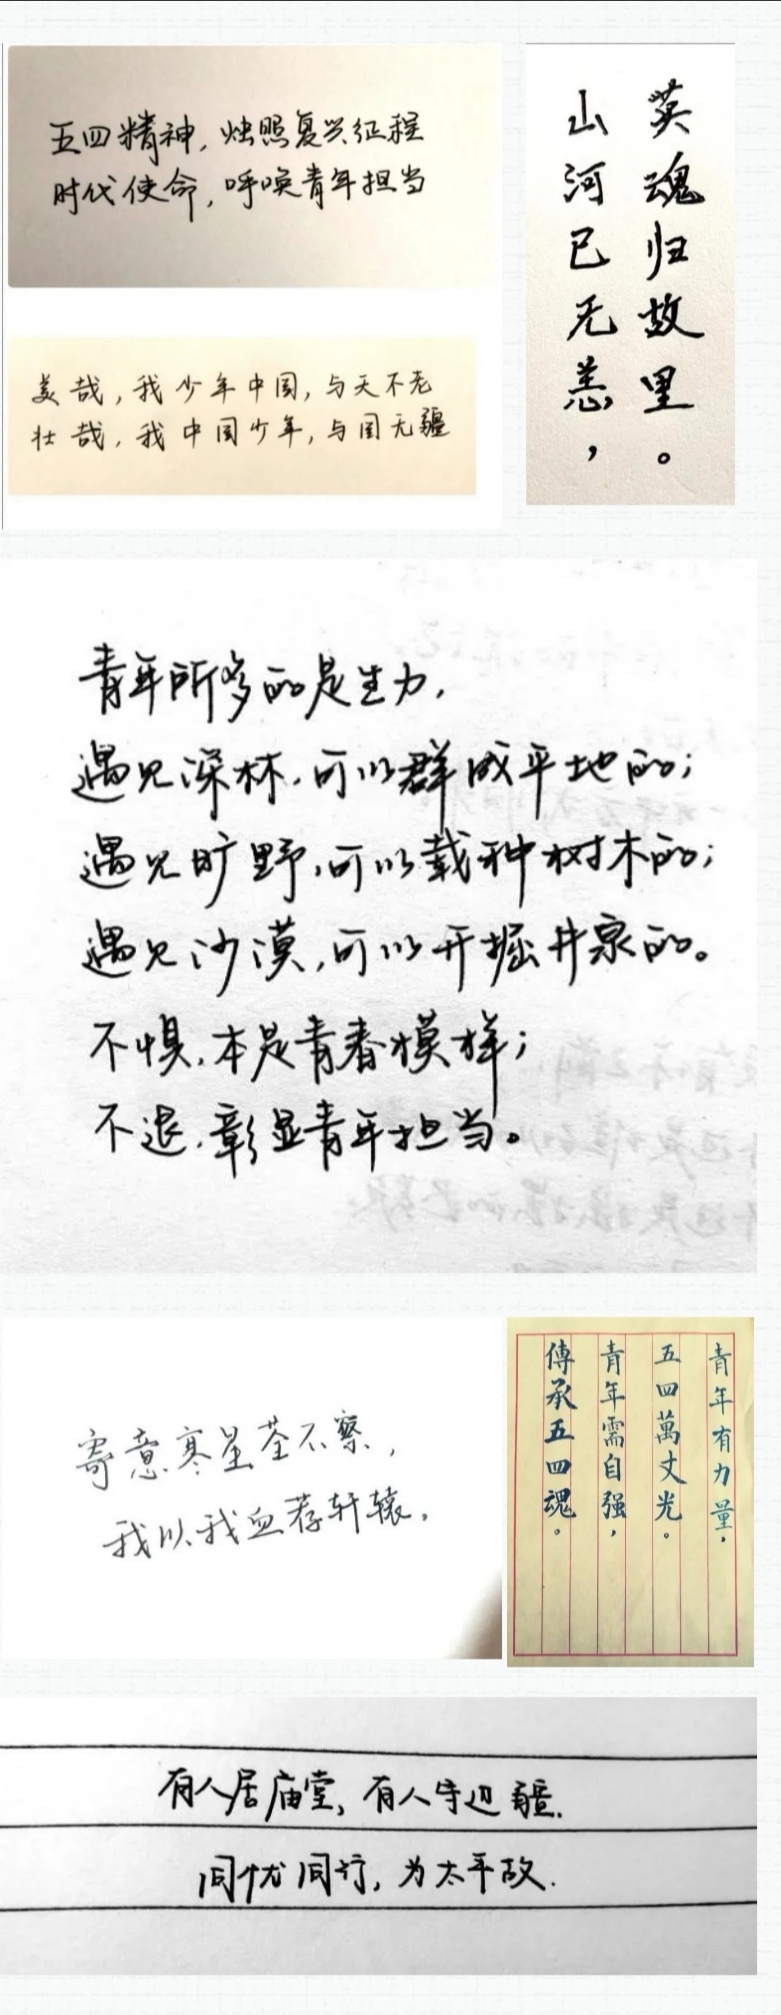 五四精神，烛照复兴征程
时代使命，呼唤青年担当
山河已无恙，
英魂归故里。
美哉，我少年中国，与天不老
壮哉，我中国少年，与国无疆
青年所多的是生力，
遇见深林，可以群成平地的；
遇见旷野，可以载种树木的；
遇见沙漠，可以开掘井泉的。
不惧，本是青春模样；
不退，彰显青年担当。
寄意寒星荃不察，
我以我血荐轩辕。
青年有力量，
五四萬丈光。
青年需自强，
傳承五四魂。
有人居庙堂，有人守边疆.
同忧同行，为太平故.